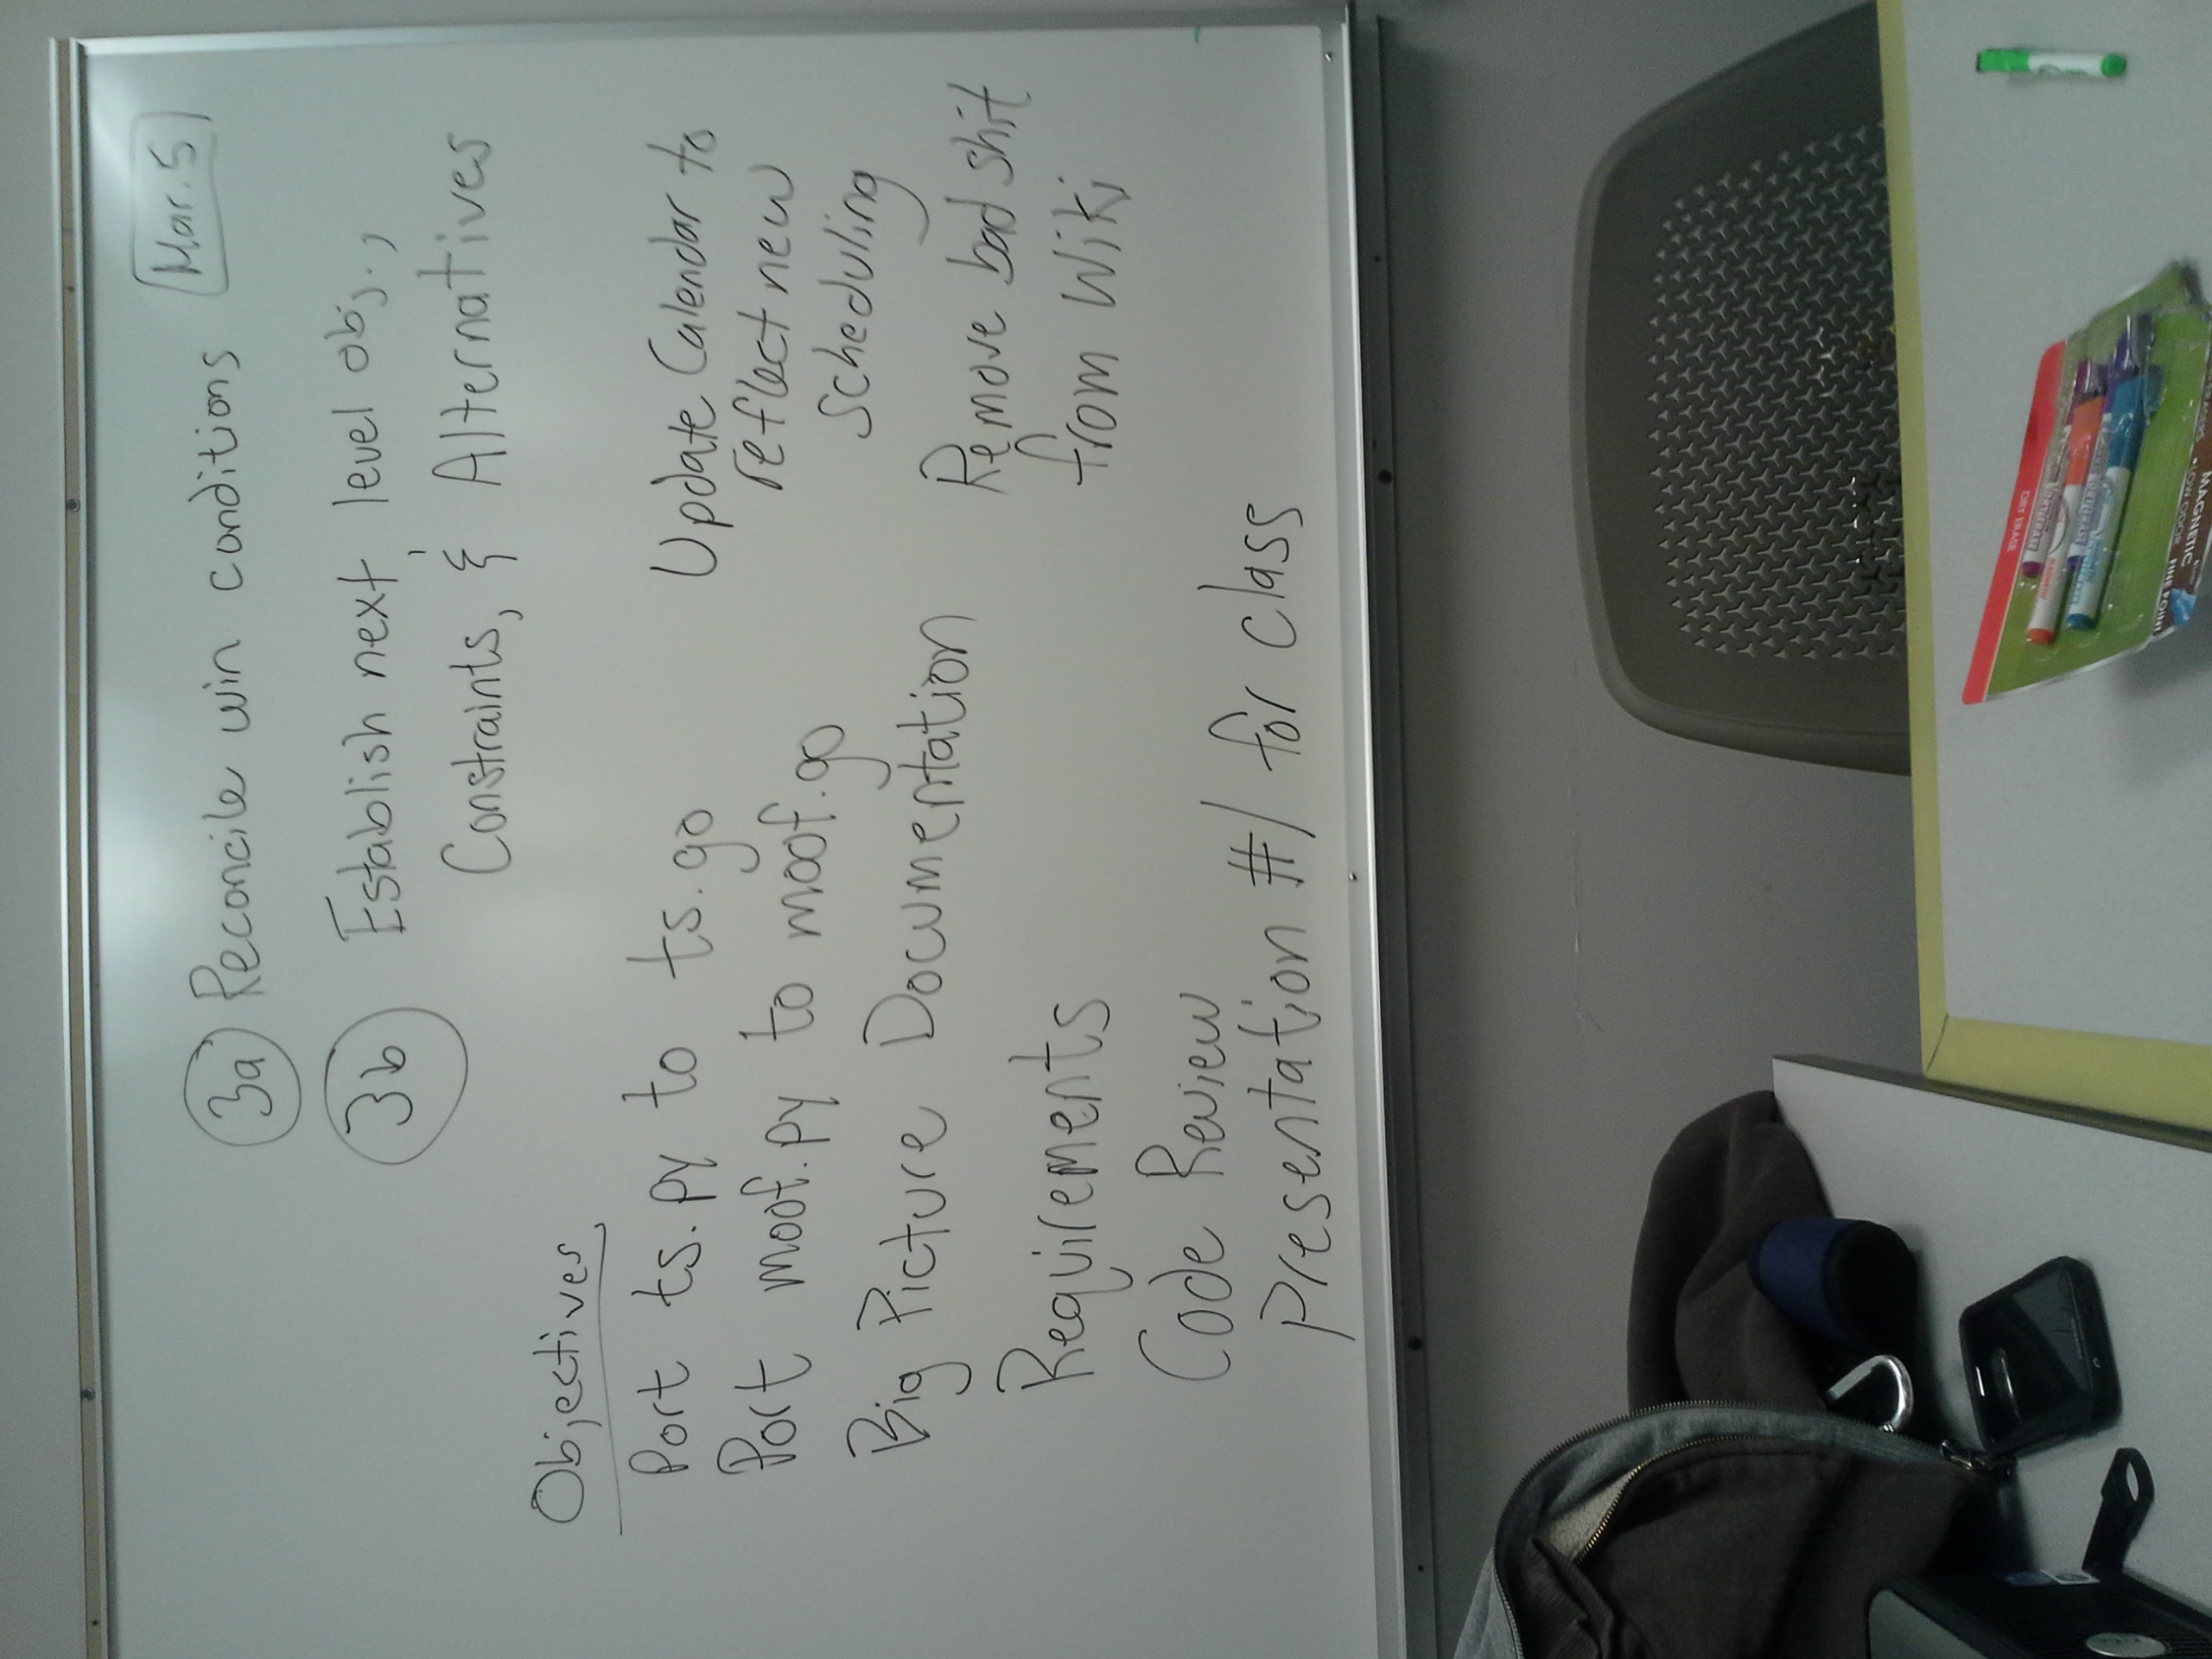 Mar. 5
3a Reconcile win conditions
3b Establish next level obj.,
Constraints, & Alternatives
Objectives
Port ts.py to ts.go
Port moof.py to moof.go
Big Picture Documentation
Requirements
Code Review
Presentation #1 for class
Update Calendar to
reflect new
scheduling
Remove bad shit
from Wiki
DRY ERASE
MAGNETIC
LOW ODOR
FINE POINT